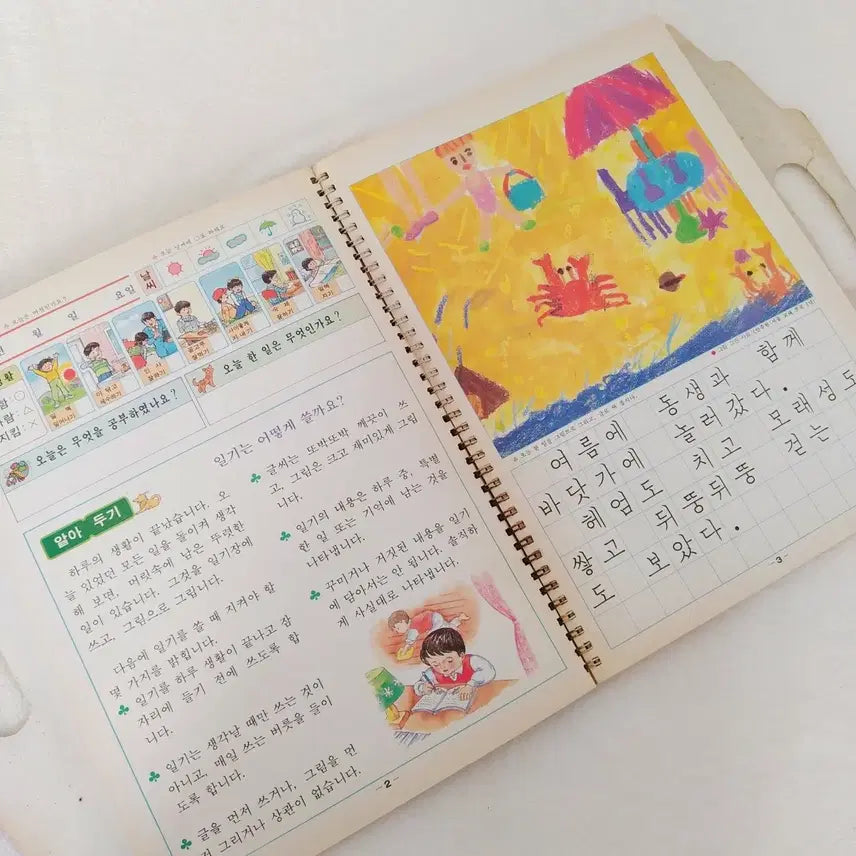 오늘은 며칠인가요?
월 일 요일
날씨
오늘 날씨에 ○표 하세요.
일찍
일어나기
세수하기
인사
잘하기
골고루
먹기
사이좋게
지내기
숙제
잘하기
일찍
자기
오늘은 무엇을 공부하였나요?
오늘 한 일은 무엇인가요?
알아 두기
일기는 어떻게 쓸까요?
하루의 생활이 끝났습니다. 오
늘 있었던 모든 일을 돌이켜 생각
해 보면, 머릿속에 남은 뚜렷한
일이 있습니다. 그것을 일기장에
쓰고, 그림으로 그립니다.
다음에 일기를 쓸 때 지켜야 할
몇 가지를 밝힙니다.
일기를 하루 생활이 끝나고 잠
자리에 들기 전에 쓰도록 합
니다.
일기는 생각날 때만 쓰는 것이
아니고, 매일 쓰는 버릇을 들이
도록 합니다.
글을 먼저 쓰거나, 그림을 먼
저 그리거나 상관이 없습니다.
글씨는 또박또박 깨끗이 쓰
고, 그림은 크고 재미있게 그립
니다.
일기의 내용은 하루 중, 특별
한 일 또는 기억에 남는 것을
나타냅니다.
꾸미거나 거짓된 내용을 일기
에 담아서는 안 됩니다. 솔직하
게 사실대로 나타냅니다.
-2-
오늘 한 일을 그림으로 그리고, 글로 써 봅시다.
여름에 동생과 함께
바닷가에 놀러갔다.
헤엄도 치고 모래성도
쌓고 뒤뚱뒤뚱 걷는
도 보았다.
-3-